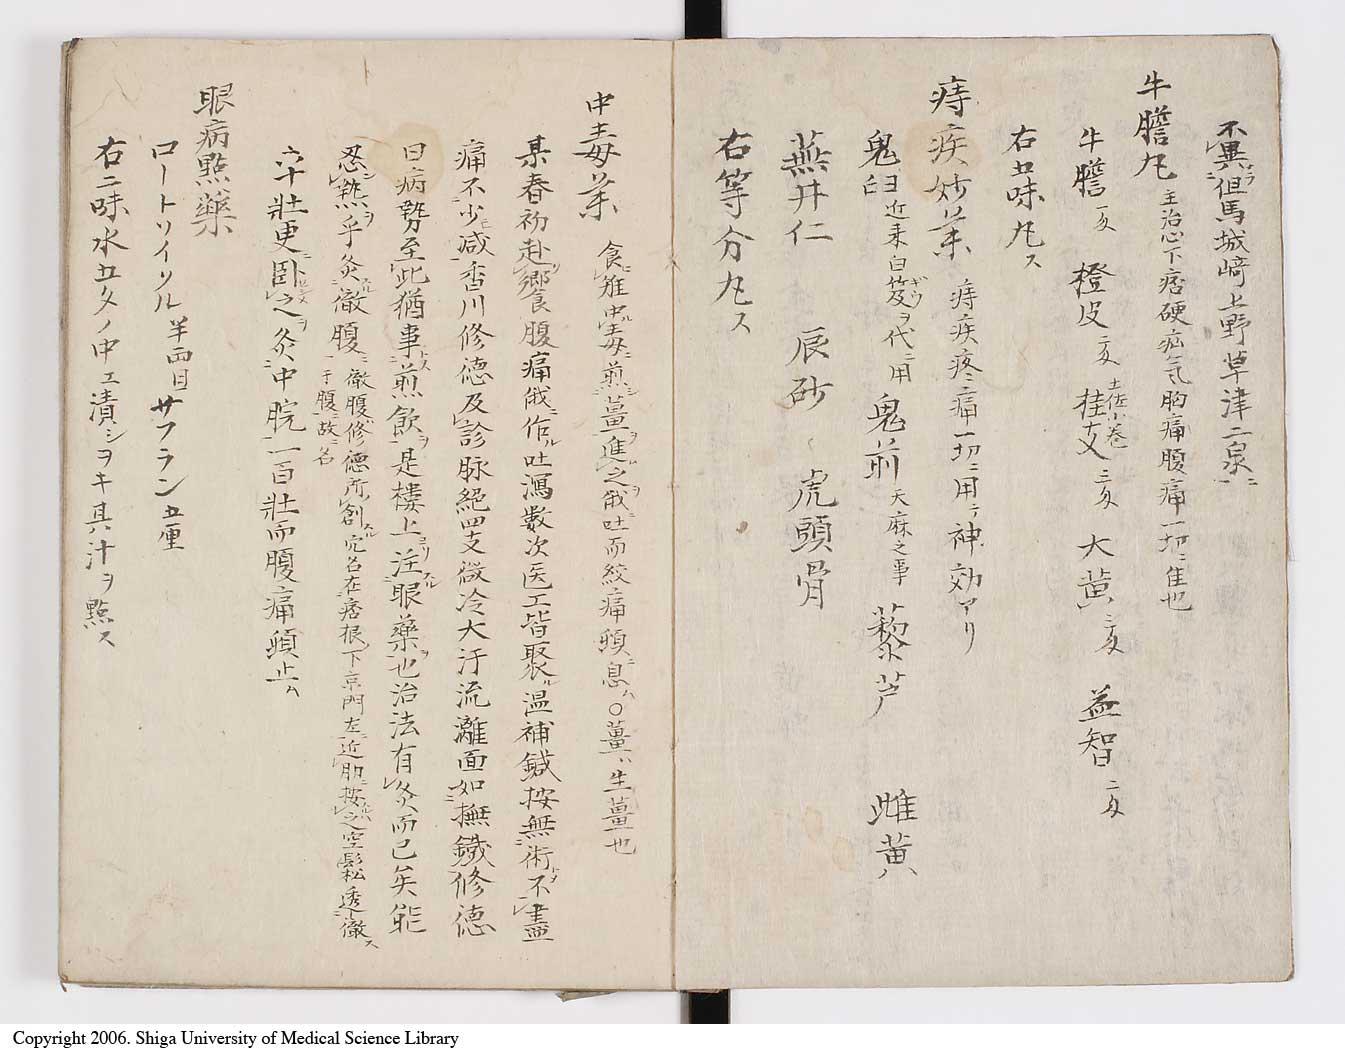 不異但馬城崎上野草津二泉
牛膽丸 主治心下痞硬疝気胸痛腹痛一切ニ佳也
牛膽 一匁 橙皮 二匁 桂支 三匁 大黄 三匁 益智 二匁
右五味丸ス
痔疾妙薬 痔疾疼痛一切ニ用テ神効アリ
鬼臼 近来白笈ヲ代ニ用 鬼前 天麻之事 藜芦 雌黄
蕪井仁 辰砂 虎頭骨
右等分丸ス
中毒薬 食雉中毒煎薑進之俄吐而絞痛頓息ム○薑ハ生薑也
某春初赴郷食腹痛俄作吐瀉数次医工皆聚温補鍼按無術不盡
痛不少减香川修徳及診脉絶四支微冷大汗流漓面如撫鐡修徳
曰病勢至此猶事煎飲是樓上注眼藥也治法有灸而已矣能
忍熱乎灸徹腹 徹腹修徳所創穴名在痞根下京門左近肋按之空鬆透徹ス
于腹故名
六十壯更臥之灸中脘一百壯而腹痛頓止ム
眼病點藥
ロートソイソル 半両目 サフラン 五厘
右二味水五夕ノ中エ漬シヲキ其汁ヲ點ス
Copyright 2006. Shiga University of Medical Science Library